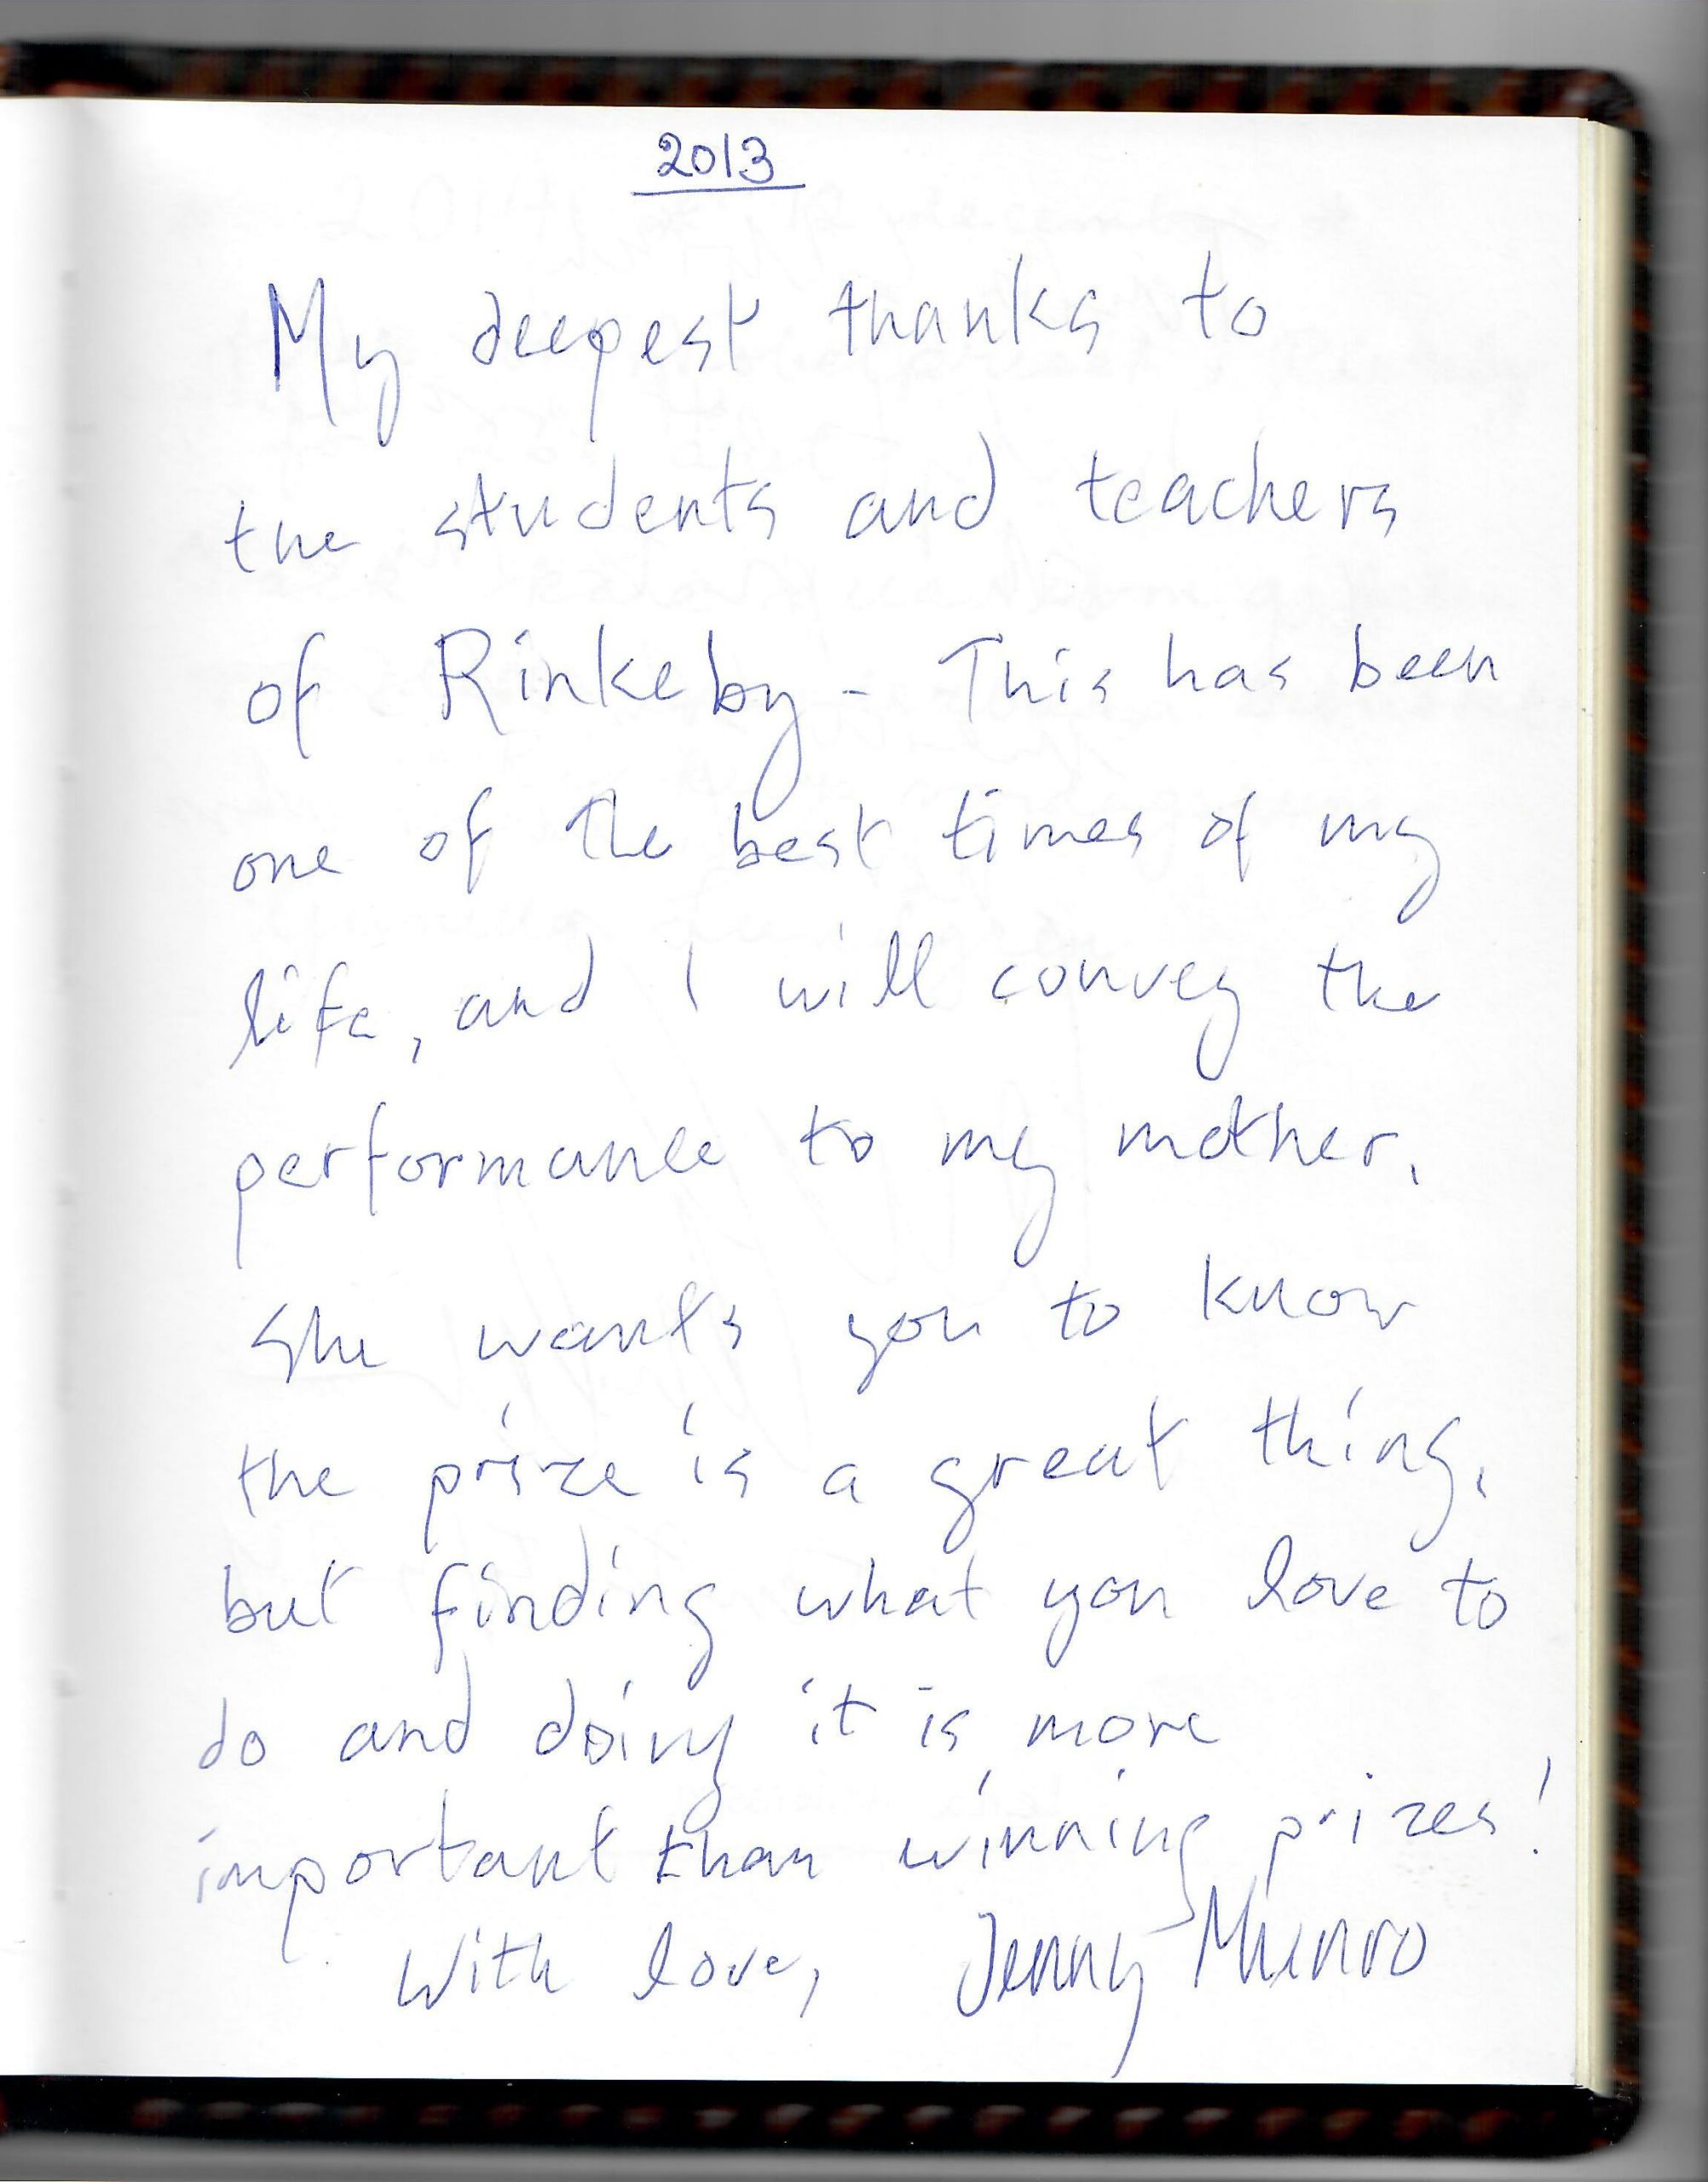 2013
My deepest thanks to
the students and teachers
of Rinkeby - This has been
one of the best times of my
life, and I will convey the
performance to my mother.
She wants you to know
the prize is a great thing,
but finding what you love to
do and doing it is more
important than winning prizes!
With love, Jenny Munro